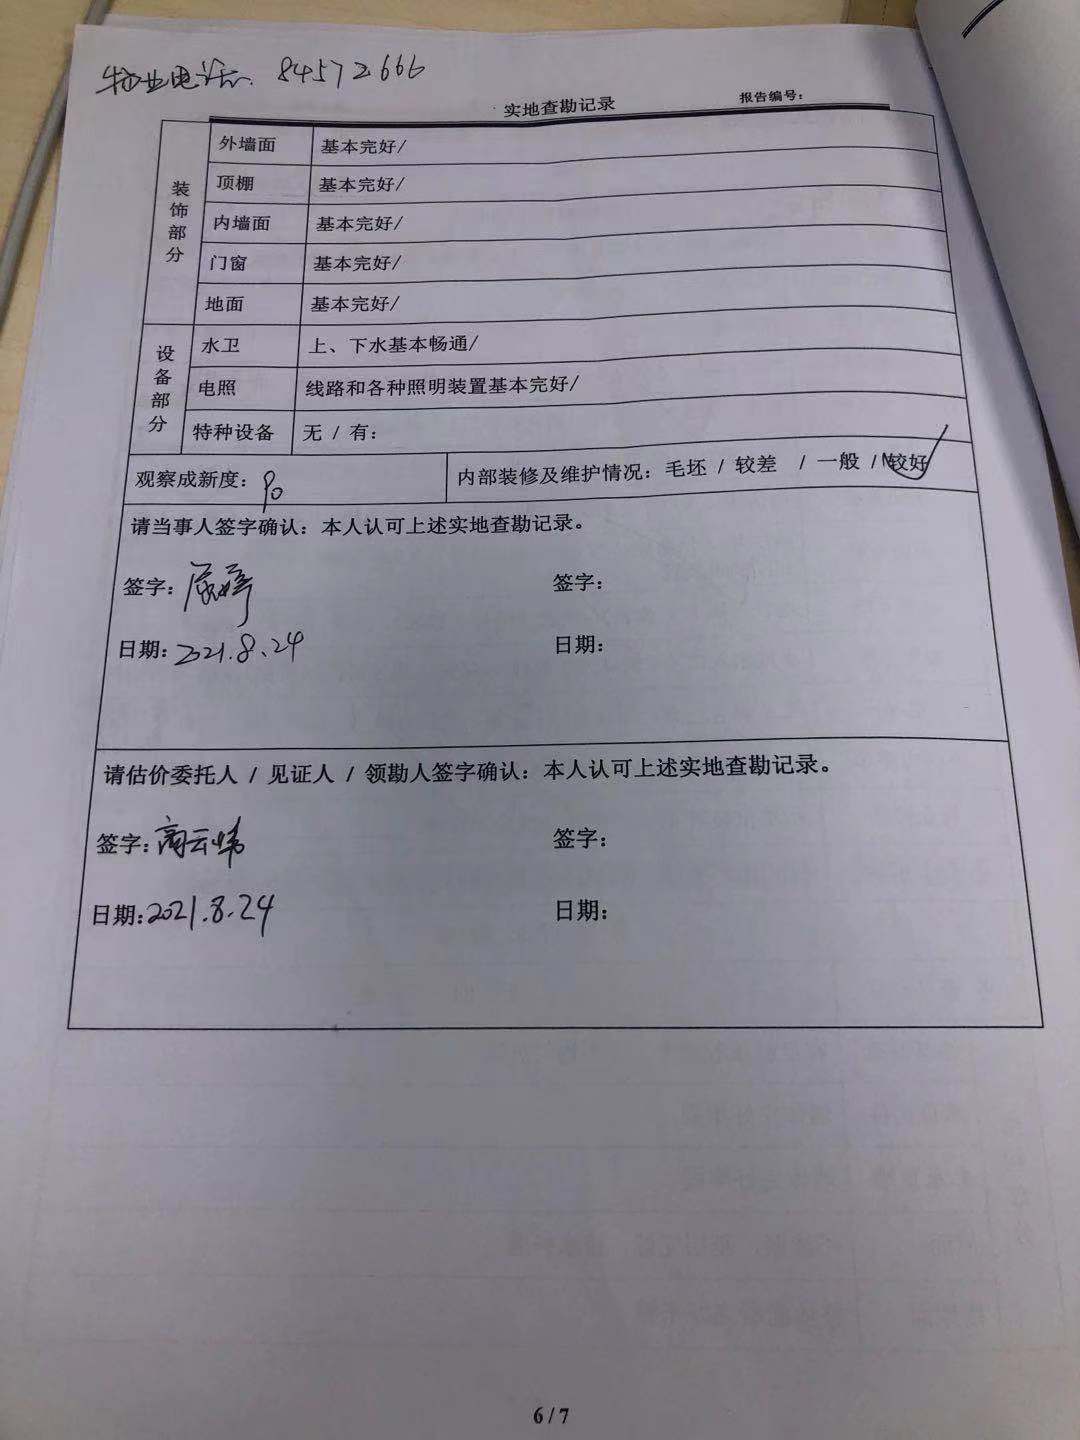 物业电话. 84572666
实地查勘记录 报告编号:
装饰部分
外墙面 基本完好/
顶棚 基本完好/
内墙面 基本完好/
门窗 基本完好/
地面 基本完好/
设备部分
水卫 上、下水基本畅通/
电照 线路和各种照明装置基本完好/
特种设备 无 / 有:
观察成新度: 90 内部装修及维护情况: 毛坯 / 较差 / 一般 / 较好
请当事人签字确认: 本人认可上述实地查勘记录。
签字: 签字:
日期: 2021.8.24 日期:
请估价委托人 / 见证人 / 领勘人签字确认: 本人认可上述实地查勘记录。
签字: 签字:
日期: 2021.8.24 日期:
6 / 7